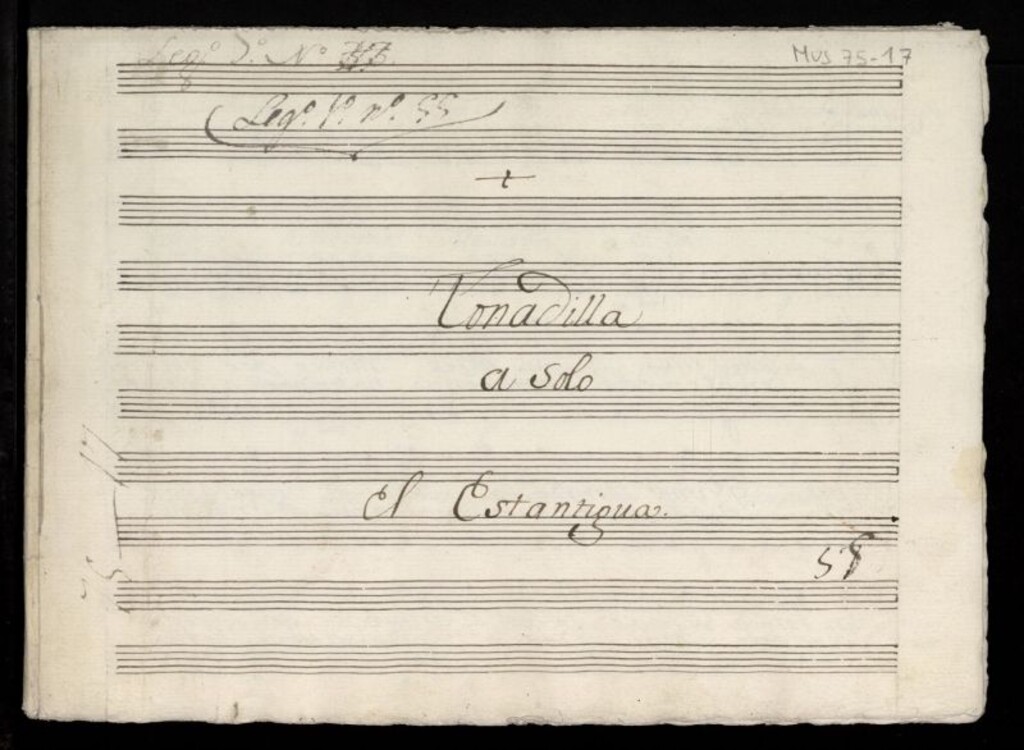 Leg.º Nº
Mus 75-17
Leg.º 1º nº. 55
Tonadilla
a Solo
El Estantigua.